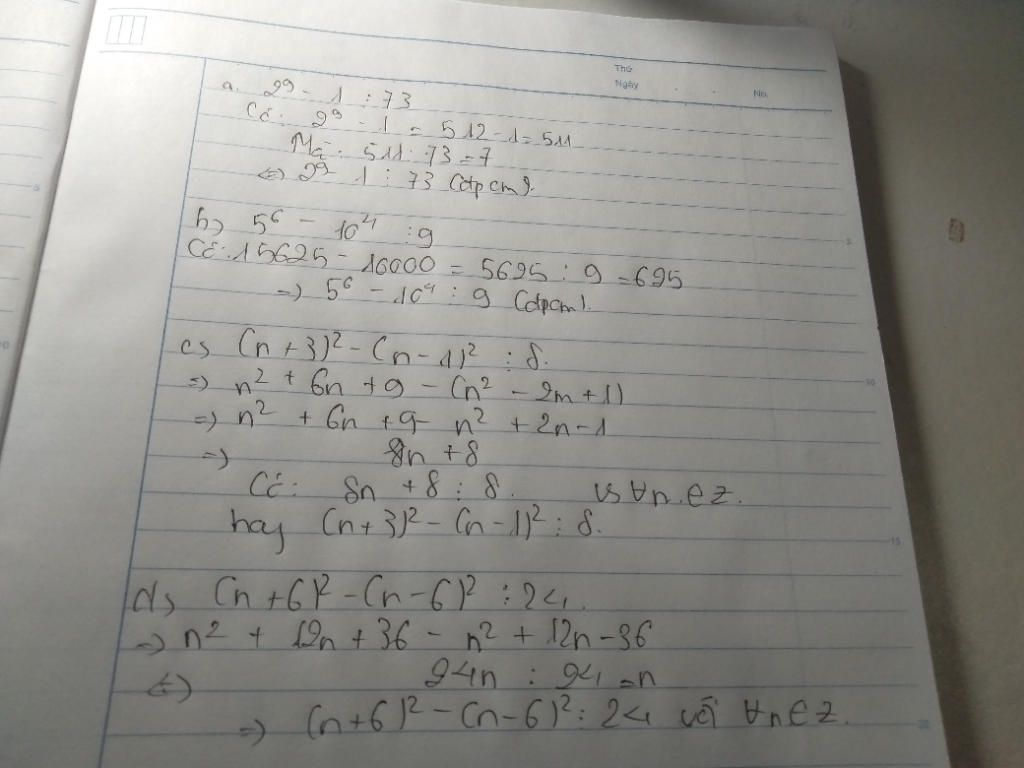 Thứ
Ngày . . No.
a. 2⁹ - 1 : 73
Có: 2⁹ - 1 = 512 - 1 = 511
Mà: 511 : 73 = 7
<=> 2⁹ 1 : 73 (đpcm).
b) 5⁶ - 10⁴ : 9
Có: 15625 - 10000 = 5625 : 9 = 625
=> 5⁶ - 10⁴ : 9 (đpcm).
c) (n + 3)² - (n - 1)² : 8.
=> n² + 6n + 9 - (n² - 2n + 1)
=> n² + 6n + 9 - n² + 2n - 1
=> 8n + 8
Có: 8n + 8 : 8. vs ∀n ∈ Z.
hay (n + 3)² - (n - 1)² : 8.
d) (n + 6)² - (n - 6)² : 24.
=> n² + 12n + 36 - n² + 12n - 36
<=> 24n : 24 = n
=> (n + 6)² - (n - 6)² : 24 với ∀n ∈ Z.